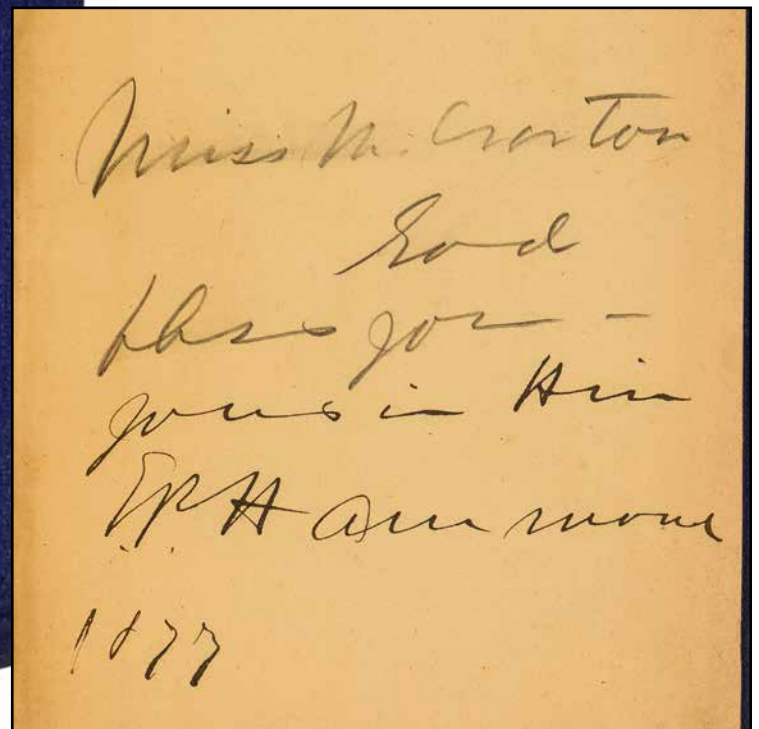 Miss M. Croxton
God
bless you –
yours in Him
E.P. Hammond
1877